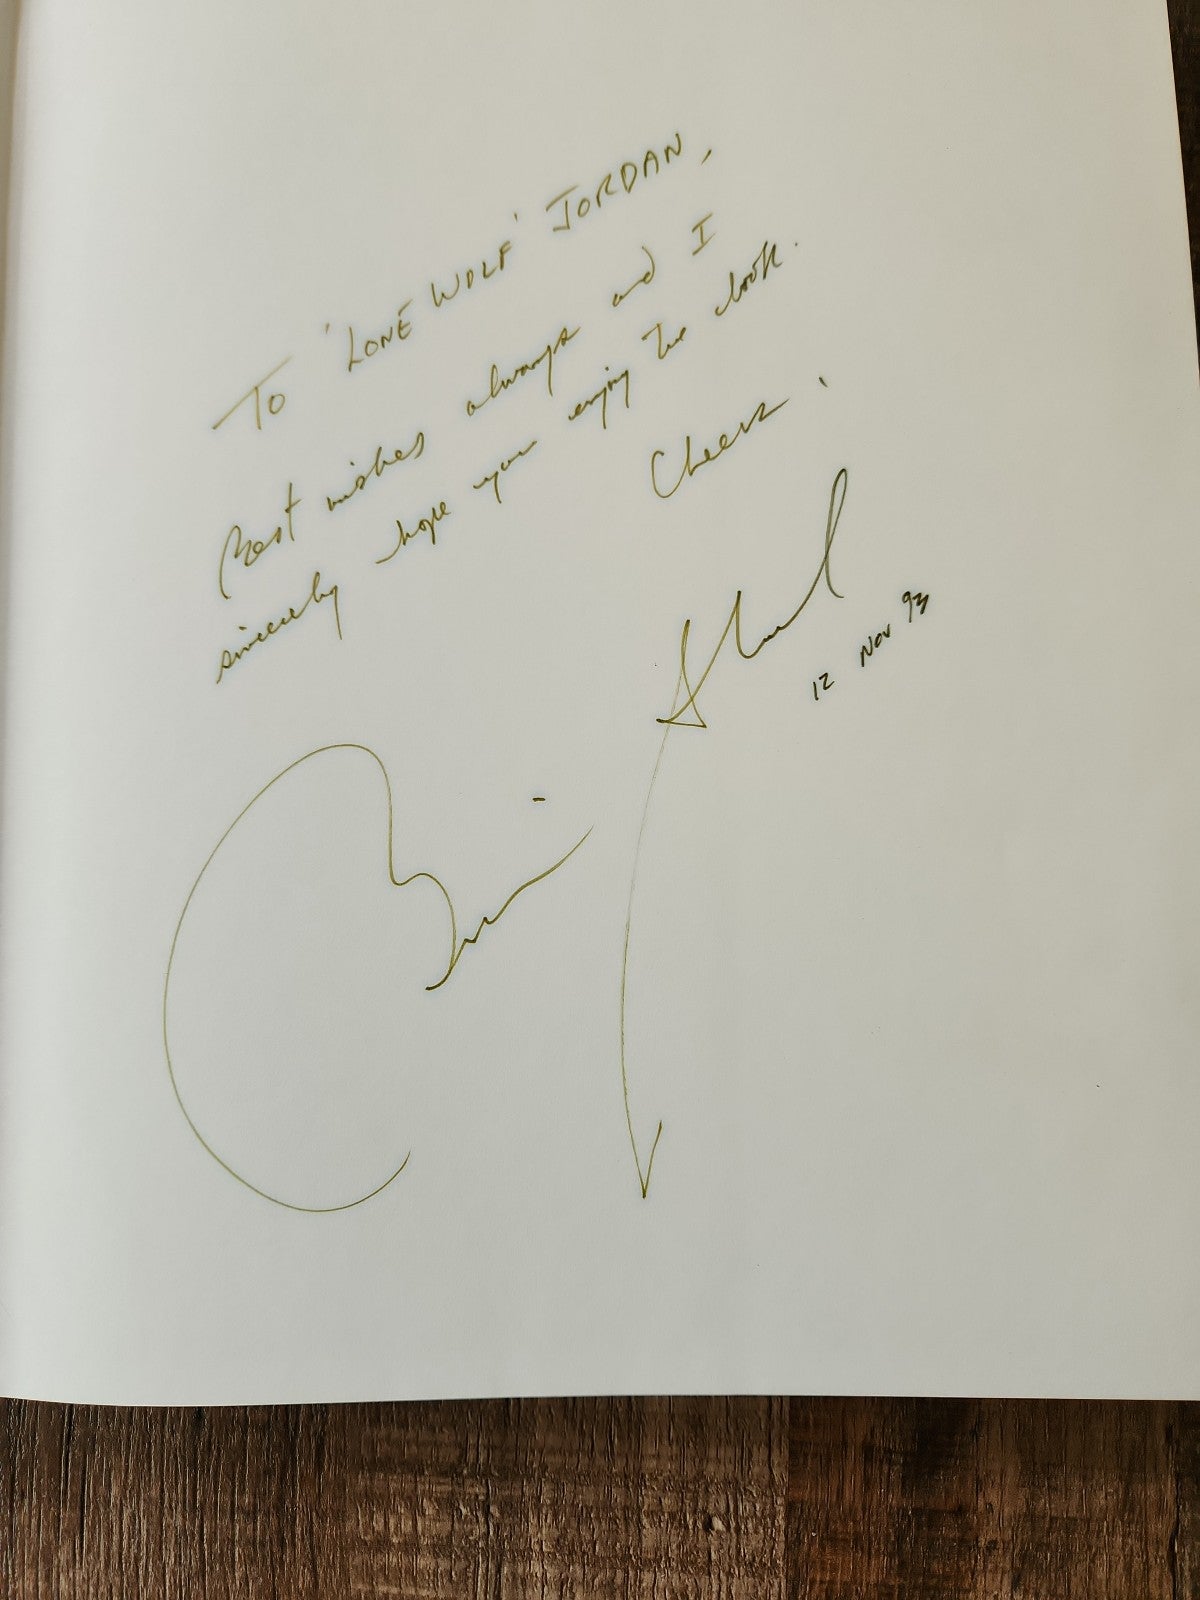 To 'LONE WOLF' JORDAN,
Best wishes always and I
sincerely hope you enjoy the book.
Cheers.
12 Nov 93